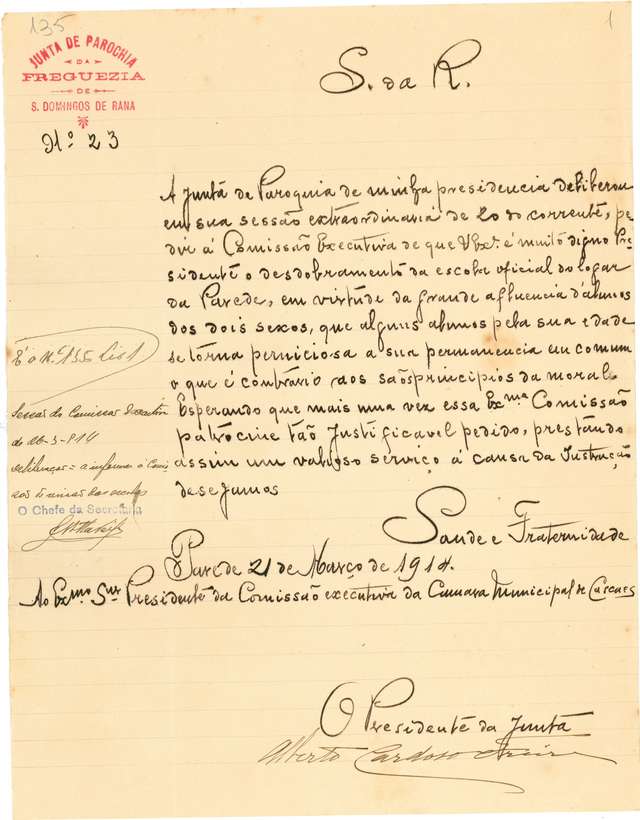 135
1
JUNTA DE PAROCHIA
DA
FREGUEZIA
DE
S. DOMINGOS DE RANA
Nº 23
S. da R.
A Junta de Paroquia de minha presidencia deliberou
em sua sessão extraordinaria de 20 do corrente, pe-
dir á Comissão Executiva de que V. Exª é muito digno Pre
sidente o desdobramento da escola oficial do logar
da Parede, em virtude da grande afluencia d'alunos
dos dois sexos, que alguns alunos pela sua edade
se torna perniciosa a sua permanencia em comum
o que é contrário aos sãos principios da moral.
Esperando que mais uma vez essa Exma Comissão
patrocine tão justificavel pedido, prestando
assim um valioso serviço á causa da Instrução
desejamos
Saude e Fraternidade
Parede 21 de Março de 1914.
Ao Exmo Snr Presidente da Comissão executiva da Camara Municipal de Cascaes
O Presidente da Junta
Alberto Cardoso
É o Nº 135
Sessão da Comissão Executiva
de 26-3-914
O Chefe da Secretaria